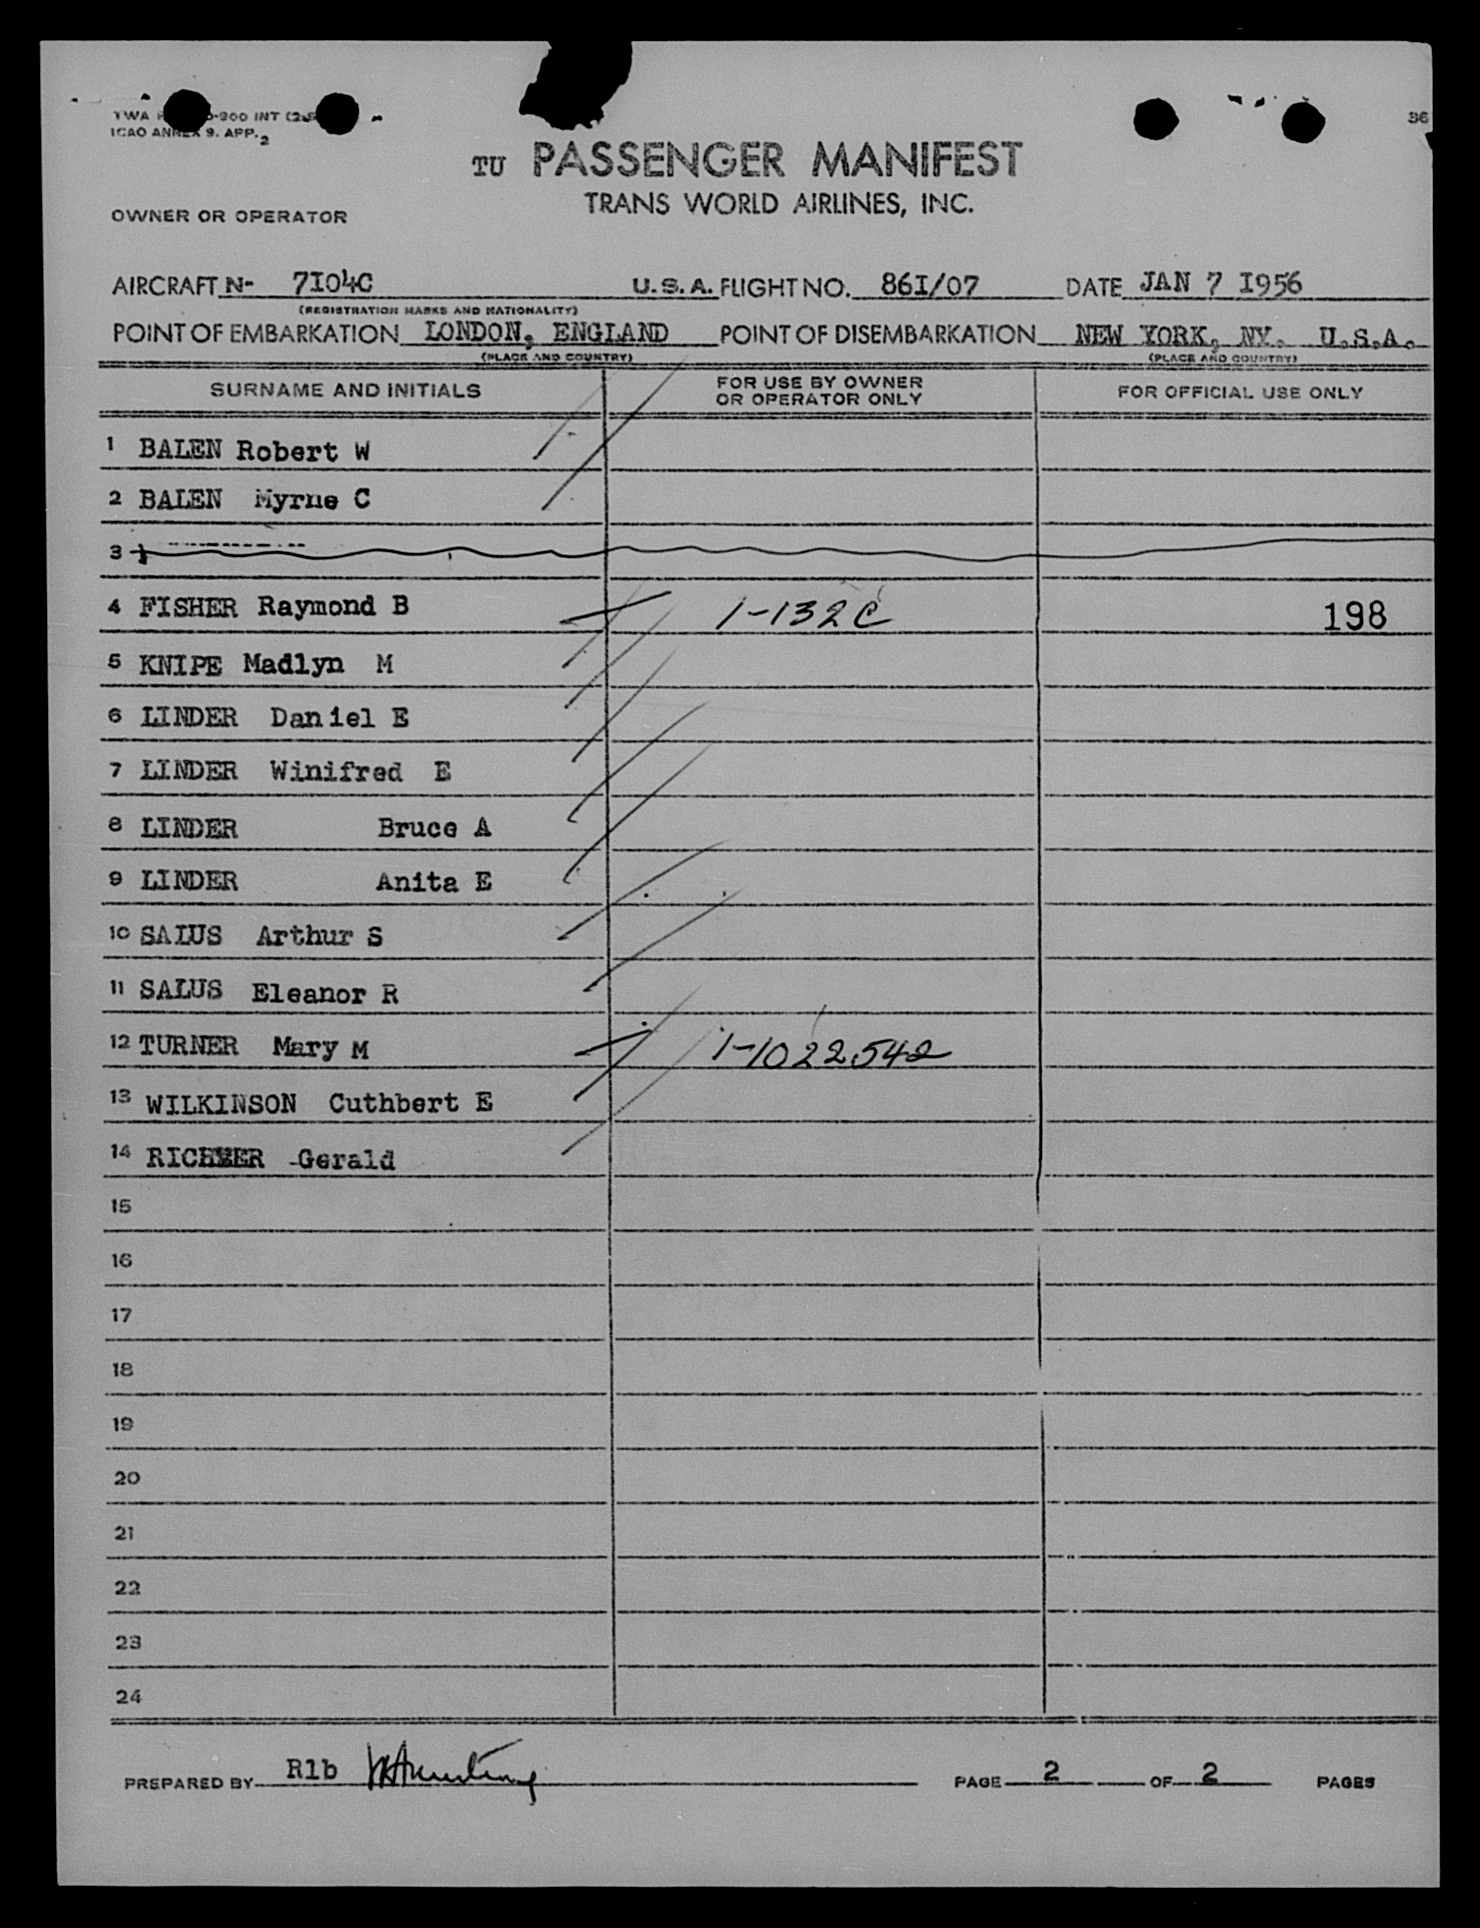 TWA -900 INT
36
ICAO ANNEX 9. APP. 2
TU PASSENGER MANIFEST
TRANS WORLD AIRLINES, INC.
OWNER OR OPERATOR
AIRCRAFT N- 7I04C U.S.A. FLIGHT NO. 86I/07 DATE JAN 7 I956
(REGISTRATION MARKS AND NATIONALITY)
POINT OF EMBARKATION LONDON, ENGLAND POINT OF DISEMBARKATION NEW YORK, NY. U.S.A.
(PLACE AND COUNTRY) (PLACE AND COUNTRY)
SURNAME AND INITIALS FOR USE BY OWNER OR OPERATOR ONLY FOR OFFICIAL USE ONLY
1 BALEN Robert W
2 BALEN Myrne C
3
4 FISHER Raymond B 1-132 C 198
5 KNIPE Madlyn M
6 LINDER Daniel E
7 LINDER Winifred E
8 LINDER Bruce A
9 LINDER Anita E
10 SALUS Arthur S
11 SALUS Eleanor R
12 TURNER Mary M 1-1022542
13 WILKINSON Cuthbert E
14 Gerald
15
16
17
18
19
20
21
22
23
24
PREPARED BY Rlb PAGE 2 OF 2 PAGES